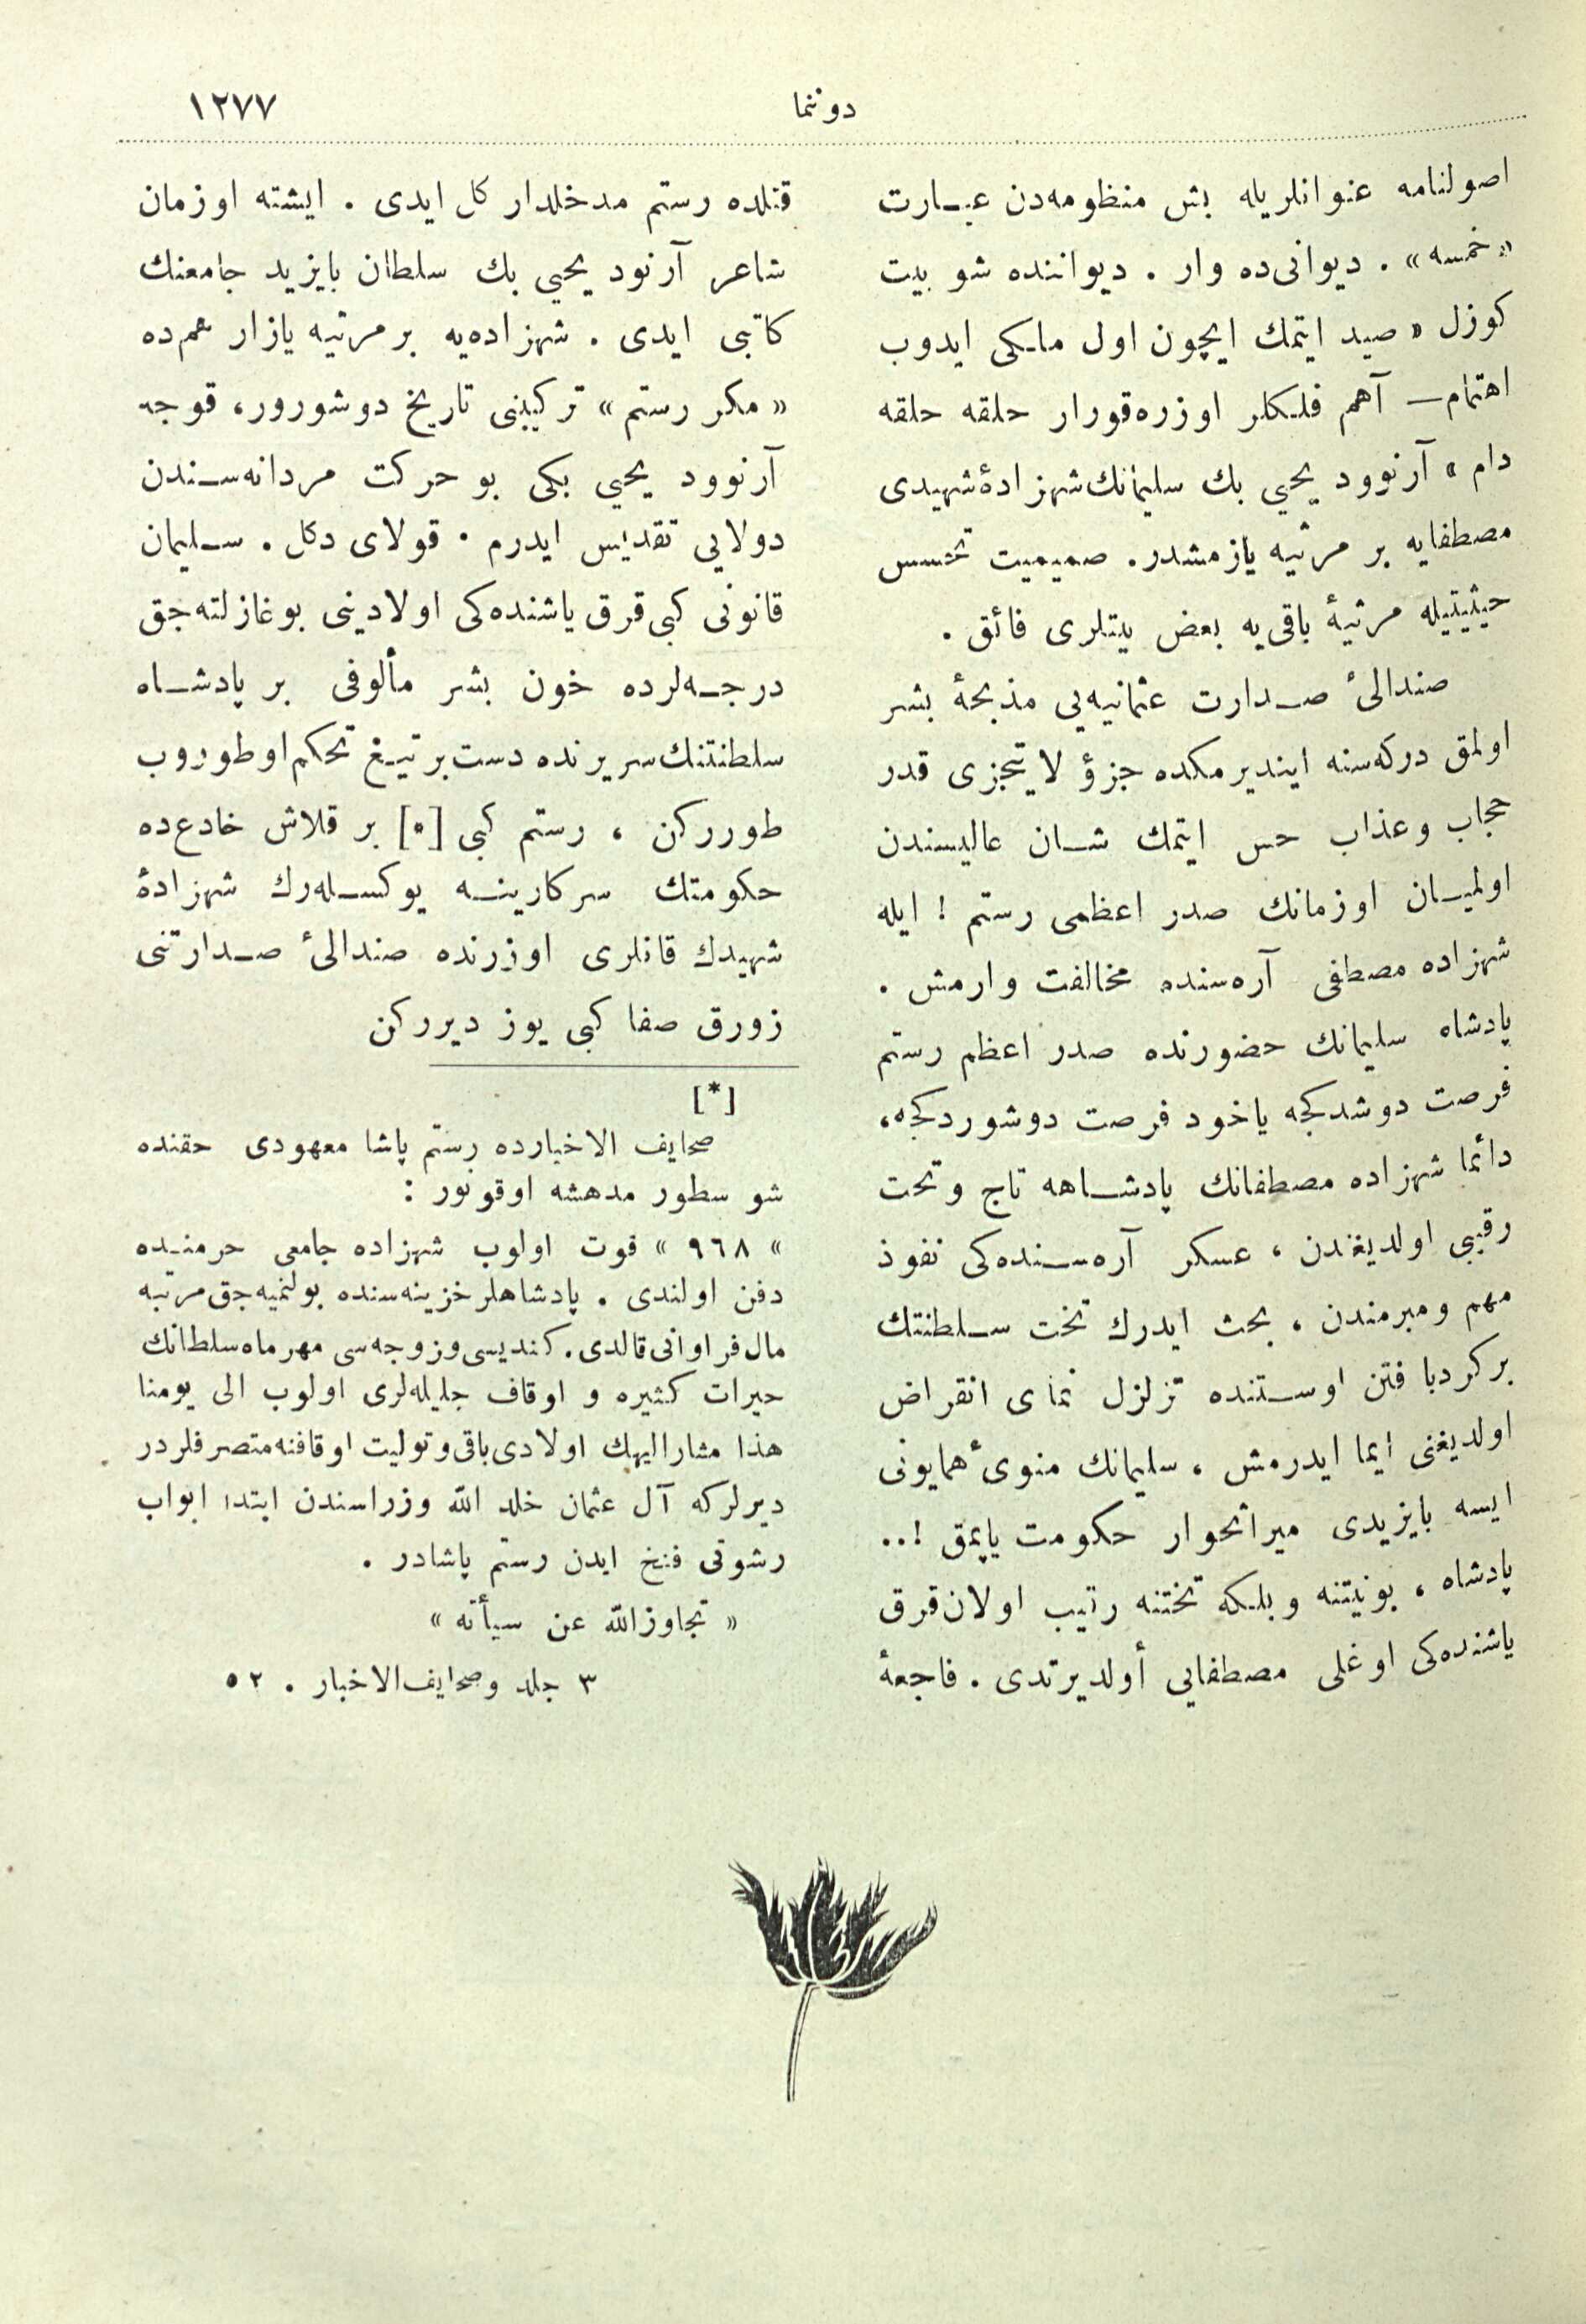 دوننما
١٢٧٧
اصولنامه عنوانلريله بش منظومه‌دن عبـارت
«خمسه» . ديوانی‌ده وار . ديواننده شو بيت
كوزل « صيد ايتمك ايچون اول ماهـكی ايدوب
اهتمام — آهم فلـكلر اوزره قورار حلقه حلقه
دام » آرنوود يحيی بك سليمانك شهزادۀ شهيدی
مصطفايه بر مرثيه يازمشدر. صميميت تحسس
حيثيتيله مرثيۀ باقی‌يه بعض بيتلری فائق .
صندالیٔ صـدارت عثمانيه‌يی مذبحۀ بشر
اولمق دركه‌سنه اينديرمكده جزؤ لا يتجزی قدر
حجاب وعذاب حس ايتمك شـان عاليسندن
اولميـان اوزمانك صدر اعظمی رستم ! ايله
شهزاده مصطفی آره‌سنده مخالفت وارمش .
پادشاه سليمانك حضورنده صدر اعظم رستم
فرصت دوشدكجه ياخود فرصت دوشوردكجه،
دائما شهزاده مصطفانك پادشـاهه تاج وتخت
رقيبی اولديغندن ، عسكر آره‌سـنده‌كی نفوذ
مهم ومبرمندن ، بحث ايدرك تخت سـلطنتك
بركردباد فتن اوسـتنده تزلزل نمای انقراض
اولديغنی ايما ايدرمش ، سليمانك منویٔ همايونی
ايسه بايزيدی ميراثخوار حكومت ياپمق !..
پادشاه ، بونيتنه وبلـكه تختنه رقيب اولان قرق
ياشنده‌كی اوغلی مصطفايی أولديرتدی . فاجعۀ
قتلده رستم مدخلدار كل ايدی . ايشته اوزمان
شاعر آرنود يحيی بك سلطان بايزيد جامعنك
كاتبی ايدی . شهزاده‌يه بر مرثيه يازار هم‌ده
« مكر رستم » تركيبنی تاريخ دوشورور، قوجه
آرنوود يحيی بكی بو حركت مردانه‌سـندن
دولايی تقديس ايدرم . قولای دكل . سـليمان
قانونی كبی قرق ياشنده‌كی اولادينی بوغازلته‌جق
درجـه‌لرده خون بشر مألوفی بر پادشـاه
سلطنتنك سريرنده دست بر تيـغ تحكم اوطوروب
طورركن ، رستم كبی [*] بر قلاش خادع‌ده
حكومتك سركارينـه يوكسـله‌رك شهزادۀ
شهيدك قانلری اوزرنده صندالیٔ صـدارتنی
زورق صفا كبی يوز ديرركن
[*]
صحايف الاخبارده رستم پاشا معهودی حقنده
شو سطور مدهشه اوقونور :
« ٩٦٨ » فوت اولوب شهزاده جامعی حرمنيـده
دفن اولندی . پادشاهلر خزينه‌سنده بولنميه‌جق مرتبه
مال فراوانی قالدی. كنديسی وزوجه‌سی مهرماه سلطانك
خيرات كثيره و اوقاف جليله‌لری اولوب الی يومنا
هذا مشاراليهك اولادی باقی وتوليت اوقافنه متصرفلردر
ديرلركه آل عثمان خلد الله وزراسندن ابتدا ابواب
رشوتی فتح ايدن رستم پاشادر .
« تجاوزالله عن سيأته »
٣ جلد وصحايف‌الاخبار . ٥٢